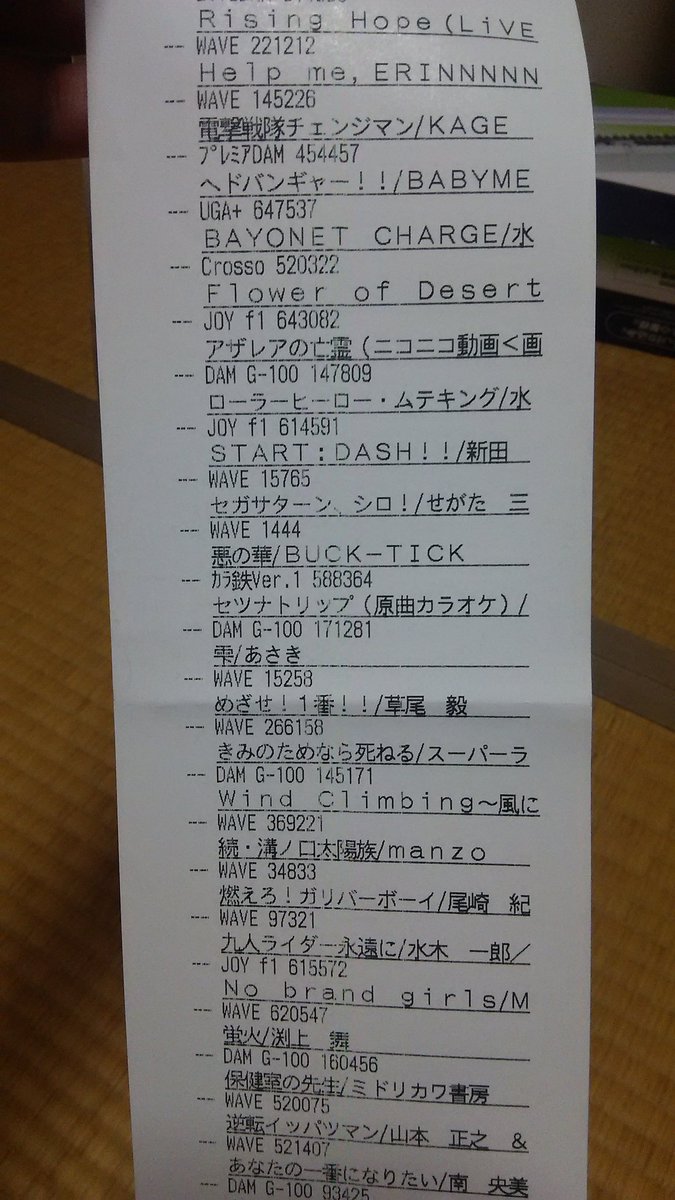 Rising Hope(LiVE
-- WAVE 221212
Help me,ERINNNNN
-- WAVE 145226
電撃戦隊チェンジマン/KAGE
-- プレミアDAM 454457
ヘドバンギャー!!/BABYME
-- UGA+ 647537
BAYONET CHARGE/水
-- Crosso 520322
Flower of Desert
-- JOY f1 643082
アザレアの亡霊(ニコニコ動画<画
-- DAM G-100 147809
ローラーヒーロー・ムテキング/水
-- JOY f1 614591
START:DASH!!/新田
-- WAVE 15765
セガサターン、シロ!/せがた 三
-- WAVE 1444
悪の華/BUCK-TICK
-- カラ鉄Ver.1 588364
セツナトリップ(原曲カラオケ)/
-- DAM G-100 171281
雫/あさき
-- WAVE 15258
めざせ!1番!!/草尾 毅
-- WAVE 266158
きみのためなら死ねる/スーパーラ
-- DAM G-100 145171
Wind Climbing~風に
-- WAVE 369221
続・溝ノ口太陽族/manzo
-- WAVE 34833
燃えろ!ガリバーボーイ/尾崎 紀
-- WAVE 97321
九人ライダー永遠に/水木 一郎/
-- JOY f1 615572
No brand girls/M
-- WAVE 620547
蛍火/渕上 舞
-- DAM G-100 160456
保健室の先生/ミドリカワ書房
-- WAVE 520075
逆転イッパツマン/山本 正之 &
-- WAVE 521407
あなたの一番になりたい/南 央美
-- DAM G-100 93425